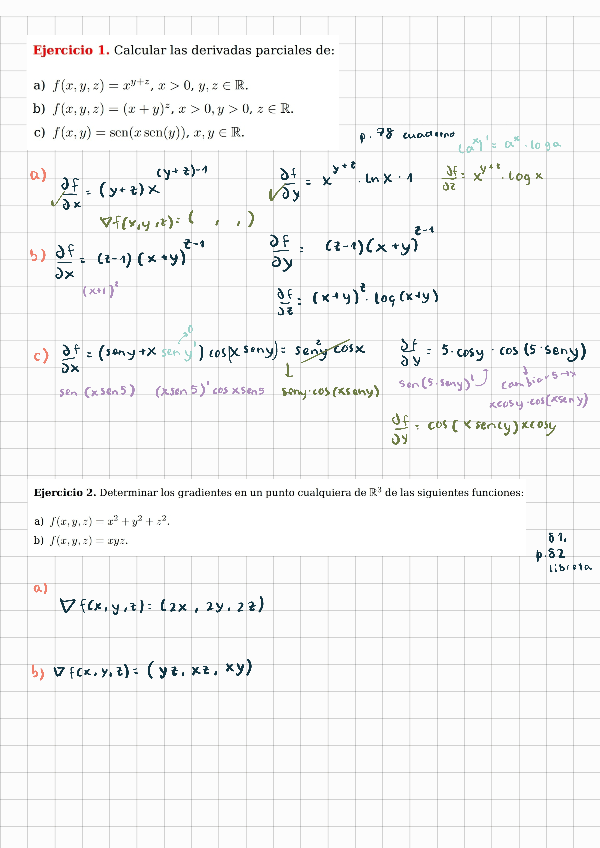 Ejercicio 1. Calcular las derivadas parciales de:
a) f(x, y, z) = x^{y+z}, x > 0, y, z ∈ ℝ.
b) f(x, y, z) = (x + y)^z, x > 0, y > 0, z ∈ ℝ.
c) f(x, y) = sen(x sen(y)), x, y ∈ ℝ.
p. 78 cuaderno
(a^x)' = a^x · log a
a) ∂f/∂x = (y+z) x^{(y+z)-1} ∂f/∂y = x^{y+z} · ln x · 1 ∂f/∂z = x^{y+z} · log x
∇f(x,y,z) = ( , , )
b) ∂f/∂x = (z-1)(x+y)^{z-1} ∂f/∂y = (z-1)(x+y)^{z-1}
(x+1)^2
∂f/∂z = (x+y)^z · log(x+y)
0
c) ∂f/∂x = (seny + x sen y') cos(x seny) = sen²y cosx ∂f/∂y = 5 · cosy · cos(5 · seny)
sen(x sen5) (x sen5)' cos x sen5 ↓ seny · cos(x seny) sen(5 · seny)' cambio 5 → x
x cosy · cos(x sen y)
∂f/∂y = cos(x sen(y)) x cosy
Ejercicio 2. Determinar los gradientes en un punto cualquiera de ℝ³ de las siguientes funciones:
a) f(x, y, z) = x² + y² + z².
b) f(x, y, z) = xyz.
81.
p. 82
libreta
a)
∇f(x, y, z) = (2x, 2y, 2z)
b) ∇f(x, y, z) = (yz, xz, xy)